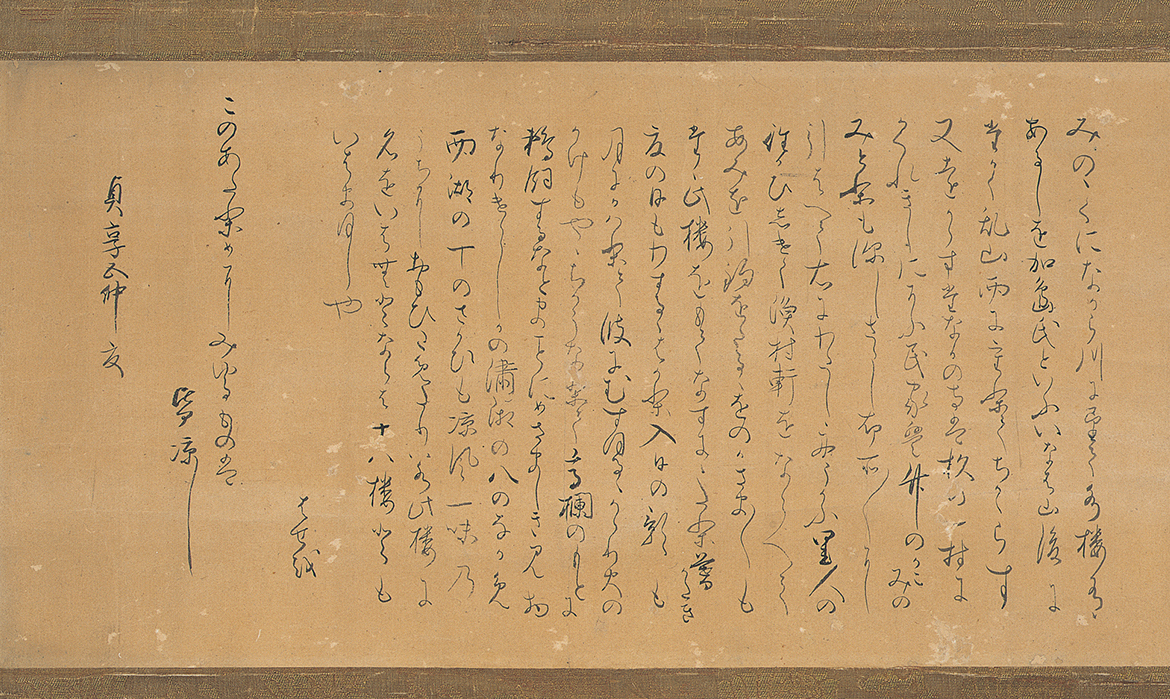 みのゝくになから川に望て水楼有
あるしを加島氏といふいなは山後に
たかく乱山西に重りてちかゝらす
又遠からすたなかの寺は杉の一村に
かくれきしにそふ民家は竹のかこみの
みとりも深しさらし布所〱に
引はへて右にわたし舟うかふ里人の
往かひしけく漁村軒をならへて
あみを引釣をたるゝをのかさま〱も
たゝ此楼をもてなすにゝたり暮かたき
夏の日もわするゝはかり入日の影も
月にかはりて波にむすほるゝかゝり火の
かけもやゝちかうなりて高欄のもとに
鵜飼するなとまことにめさましき見物
なりけらしかの瀟湘の八のなかめ
西湖の十のさかひも涼風一味の
うちにおもひためたり若此楼に
名をいはむとならは十八楼とも
いはまほしや
はせを
このあたり目にみゆるものは
皆涼し
貞享五仲夏